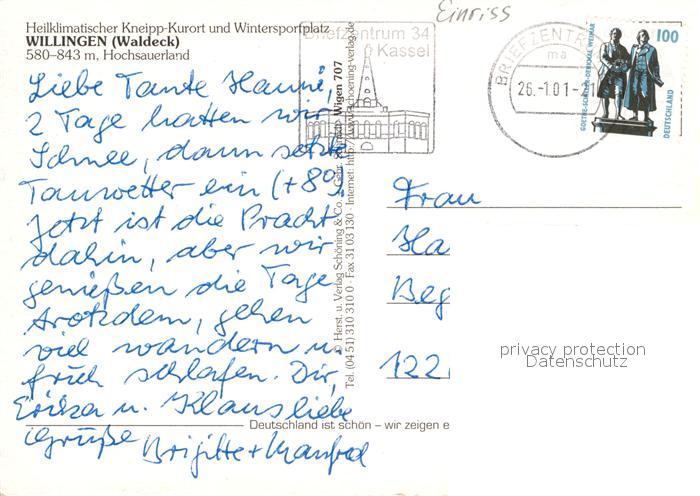 Einriss
Heilklimatischer Kneipp-Kurort und Wintersportplatz
WILLINGEN (Waldeck)
580–843 m, Hochsauerland
Briefzentrum 34
Kassel
BRIEFZENTRUM
ma
26.-1.01-21
100
GOETHE-SCHILLER-DENKMAL WEIMAR
DEUTSCHLAND
Liebe Tante Hanni,
2 Tage hatten wir
Schnee, dann setzte
Tauwetter ein (+8°).
Jetzt ist die Pracht
dahin, aber wir
genießen die Tage
trotzdem, gehen
viel wandern u.
früh schlafen. Dir,
Erika u. Klaus liebe
Grüße Brigitte + Manfred
Wigen 707
© Herst. u. Verlag Schöning & Co.
Tel. (04 51) 310 31 0 · Fax 31 03 130 · Internet: http://www.schoening-verlag.de
Deutschland ist schön – wir zeigen e
Frau
Ha
Beg
122
privacy protection
Datenschutz